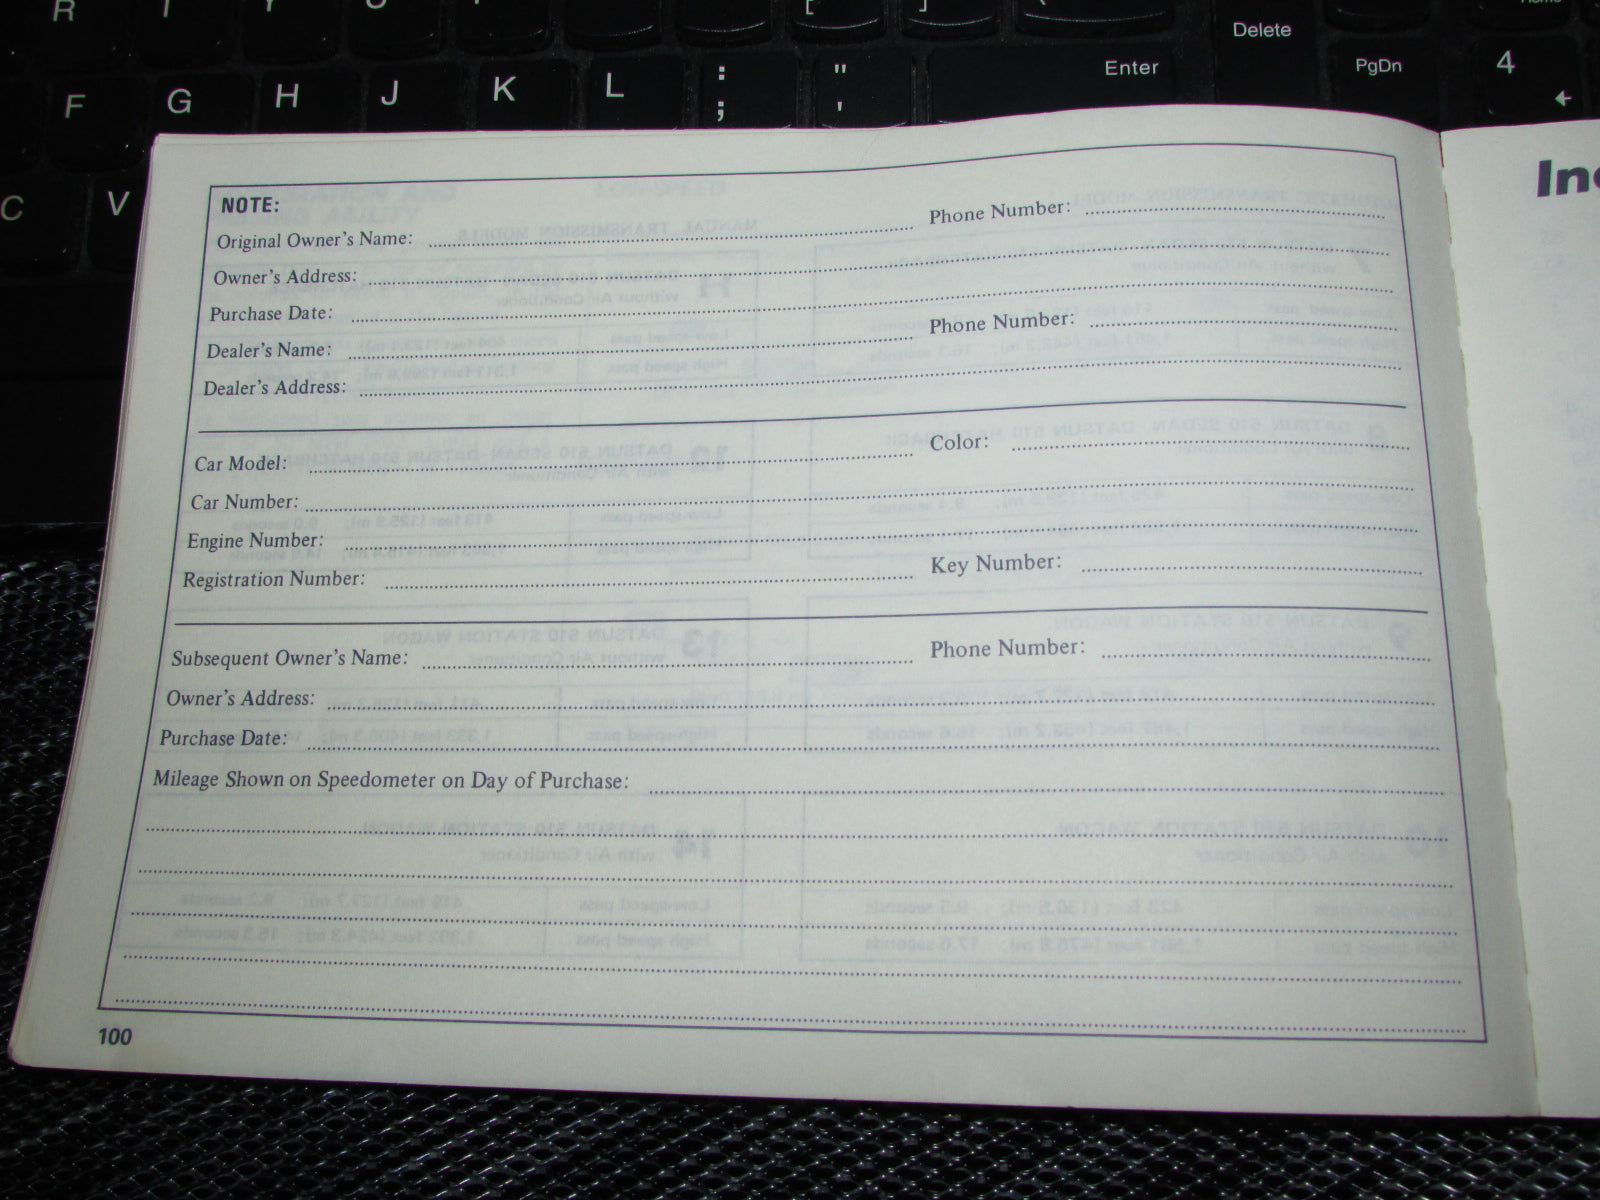 R T Y [ ] Home
Delete
F G H J K L : ; " ' Enter PgDn 4
C V
NOTE:
Original Owner's Name: Phone Number:
Owner's Address:
Purchase Date:
Dealer's Name: Phone Number:
Dealer's Address:
Car Model: Color:
Car Number:
Engine Number:
Registration Number: Key Number:
Subsequent Owner's Name: Phone Number:
Owner's Address:
Purchase Date:
Mileage Shown on Speedometer on Day of Purchase:
100